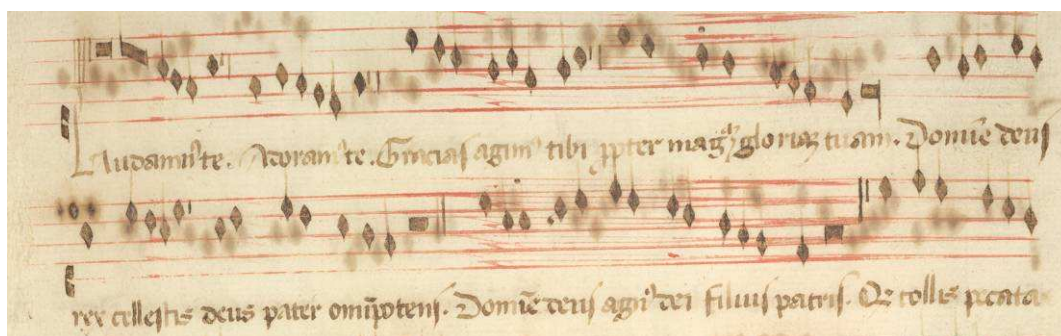 Laudamus te. Adoramus te. Gracias agimus tibi propter magnam gloriam tuam. Domine deus
rex celestis deus pater omnipotens. Domine deus agnus dei filius patris. Qui tollis peccata